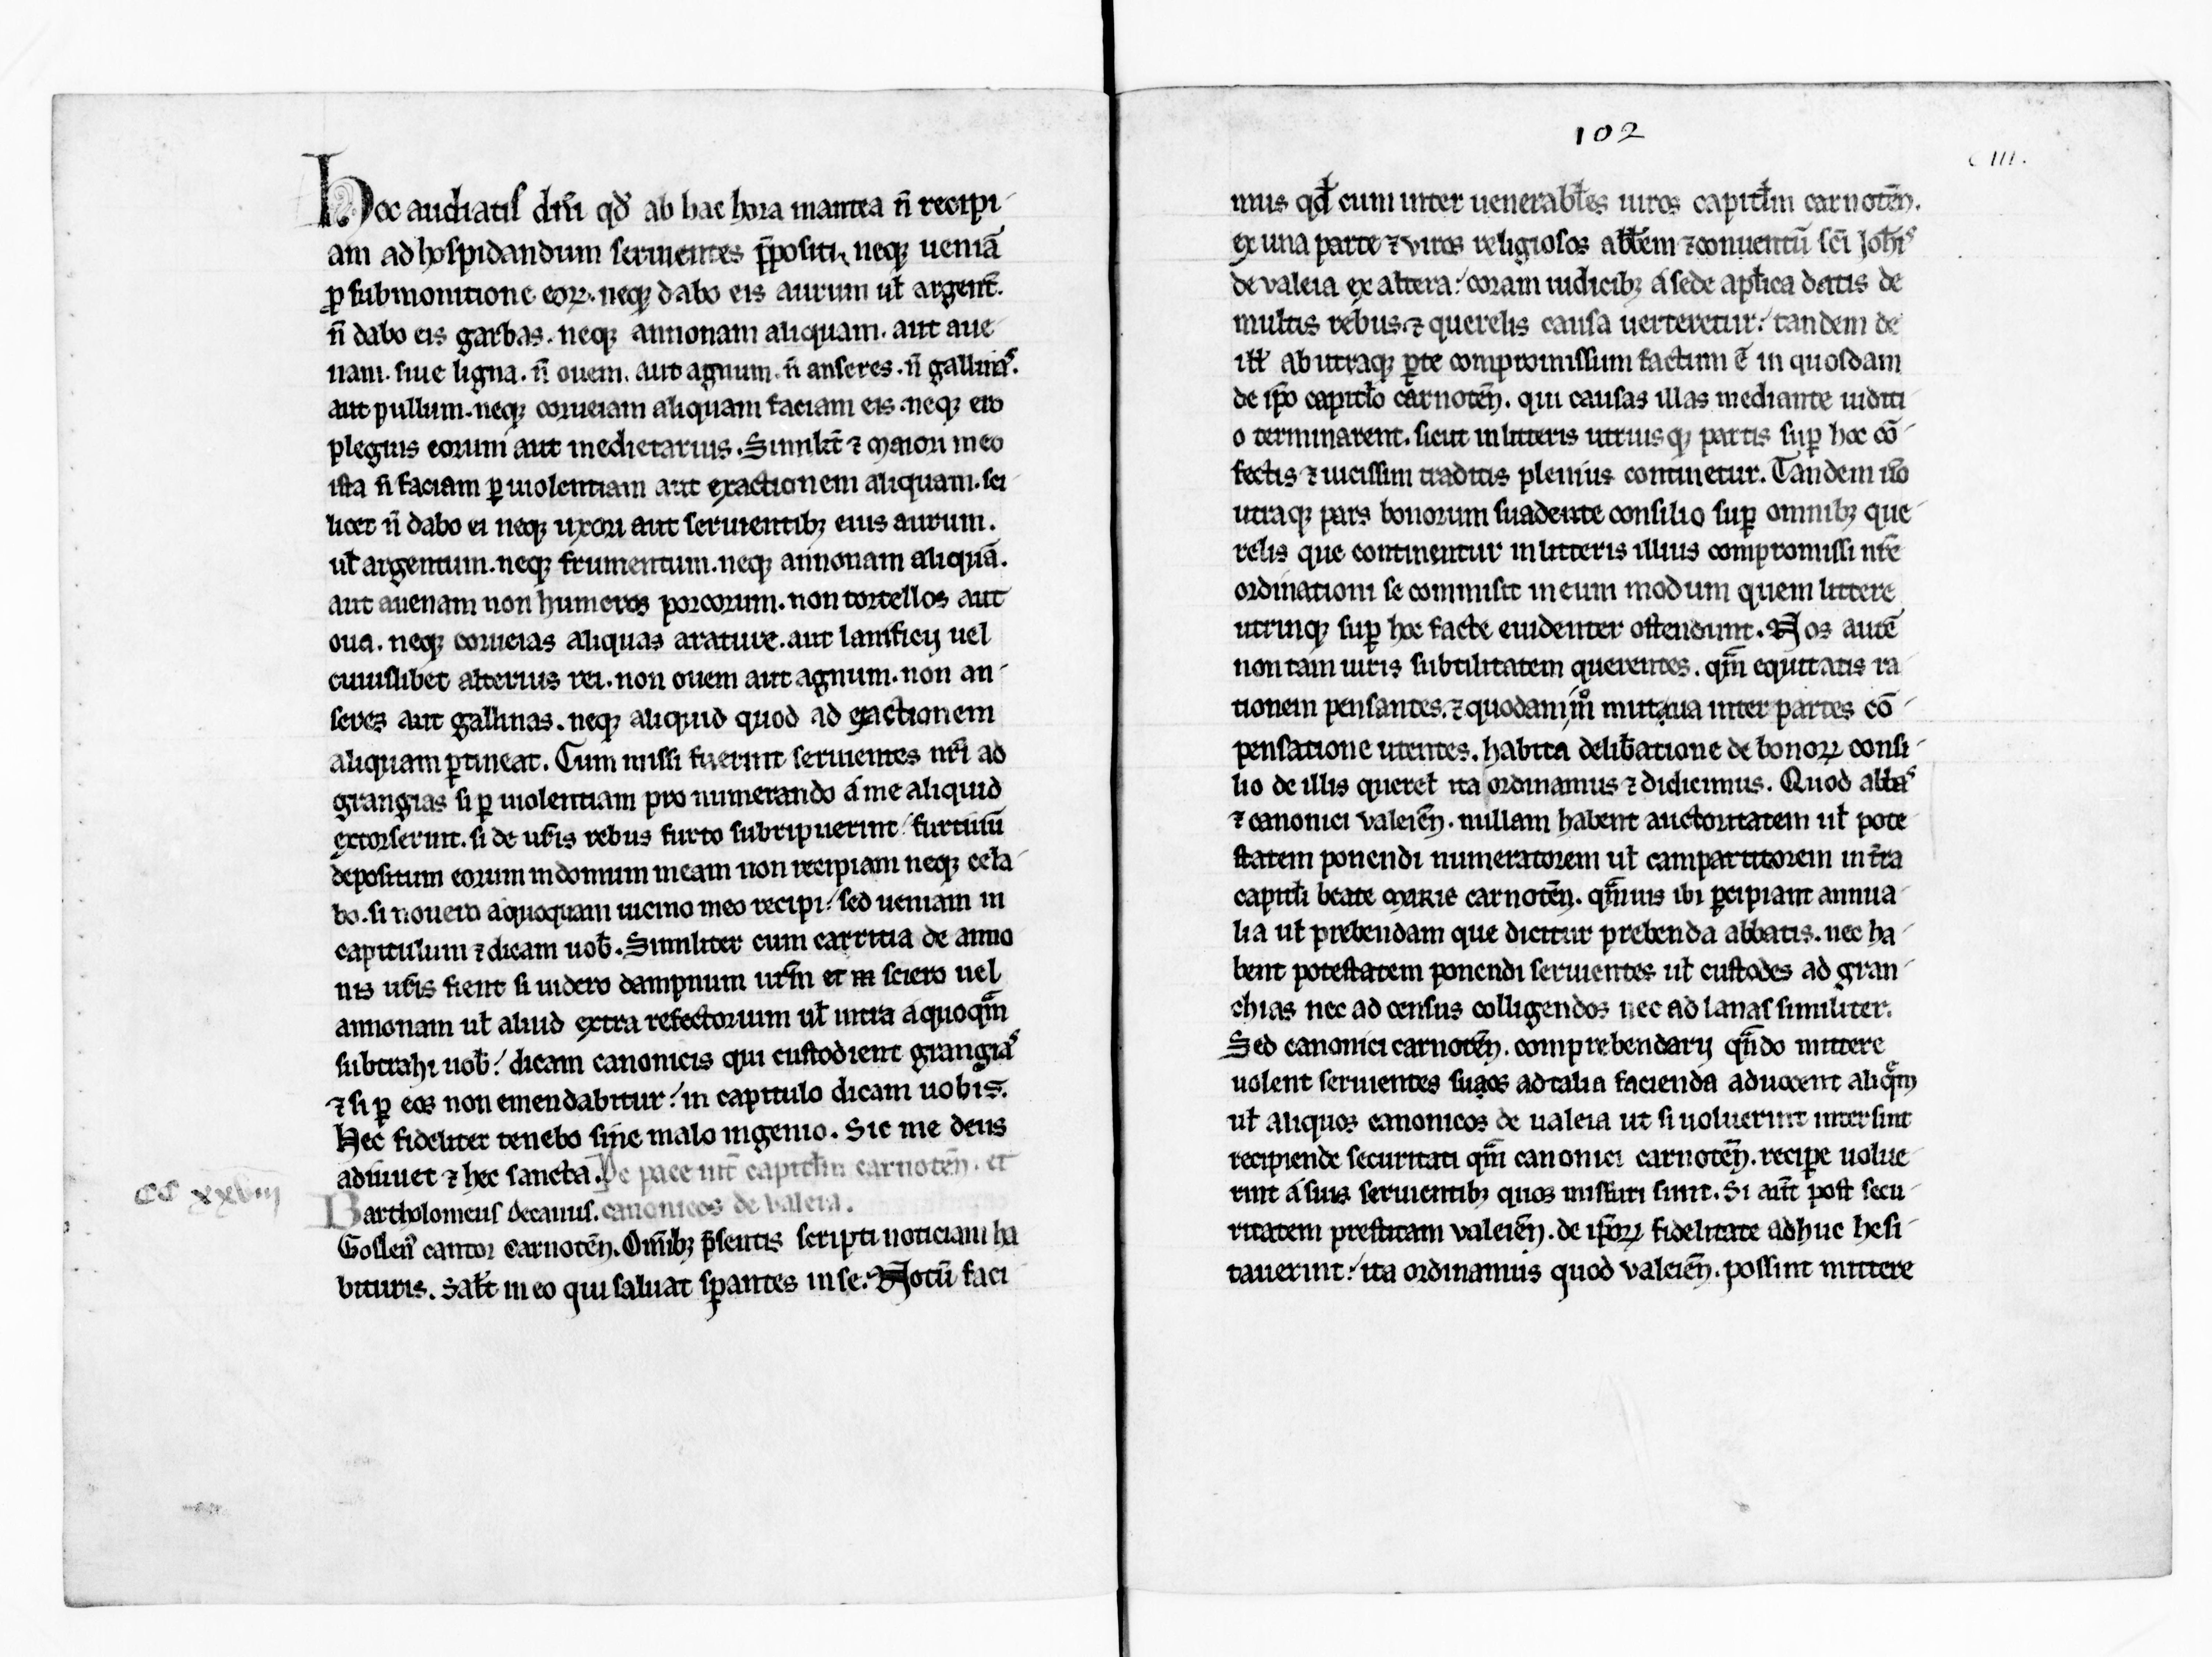 hoc audiatis dñi qđ ab hac hora inantea ñ recipi
am ad hospidandum seruientes p̄positi, neqȝ ueniā
ꝓ submonitione eoꝝ. neqȝ dabo eis aurum uł argent̄.
ñ dabo eis garbas. neqȝ annonam aliquam. aut aue
nam. siue ligna. ñ ouem. aut agnum. ñ anseres. ñ gallinas.
aut pullum. neqȝ corueiam aliquam faciam eis. neqȝ ero
plegius eorum aut medietarius. Similit̄ ⁊ Maiori meo
ista ñ faciam ꝑ uiolentiam aut exactionem aliquam. sci
licet ñ dabo ei neqȝ uxori aut seruientibȝ eius aurum.
uł argentum. neqȝ frumentum. neqȝ annonam aliquā.
aut auenam non humeros porcorum. non tortellos aut
oua. neqȝ corueias aliquas arature. aut lanificij uel
cuiuslibet alterius rei. non ouem aut agnum. non an
seres aut gallinas. neqȝ aliquid quod ad exactionem
aliquam ꝑtineat. Cum missi fuerint seruientes nr̄i ad
grangias si ꝑ uiolentiam pro numerando a me aliquid
extorserint. si de ur̄is rebus furto subripuerint furtiuū
depositum eorum in domum meam non recipiam neqȝ cela
bo. si nouero a quoquam uicino meo recipi: sed ueniam in
capitulum ⁊ dicam uob̄. Similiter cum carritia de anno
nis ur̄is fient si uidero dampnum ur̄m et in sciero uel
annonam uł aliud extra refectorium uł intra a quoqm̄
subtrahi uob̄: dicam canonicis qui custodient grangias
⁊ si ꝑ eos non emendabitur: in capitulo dicam uobis.
Hec fideliter tenebo sine malo ingenio. Sic me deus
adiuuet ⁊ hec sancta. De pace int̄ capitłm carnoteñ. et
CC XXVIII
Bartholomeus decanus. canonicos de valeia.
Gosleñ cantor carnoteñ. Omībȝ p̄sentis scripti noticiam ha
bituris. Salt̄ in eo qui saluat sꝑantes in se. Notū faci
102
CIII.
mus qđ cum inter uenerabłes uiros capitłm carnoteñ.
ex una parte ⁊ viros religiosos abb̄em ⁊ conuentū sc̄i Joh̄is
de valeia ex altera: coram iudicibȝ a sede apłica datis de
multis rebus ⁊ querelis causa uerteretur: tandem de
ill̄ ab utraqȝ ꝑte compromissum factum ē in quosdam
de ip̄o capitło carnoteñ. qui causas illas mediante iuditi
o terminarent. sicut in litteris utriusqȝ partis suꝑ hoc cō
fectis ⁊ uicissim traditis plenius continetur. Tandem u̾o
utraqȝ pars bonorum suadente consilio suꝑ omnibȝ que
relis que continentur in litteris illius compromissi nr̄e
ordinationi se commisit in eum modum quem littere
utrinqȝ suꝑ hoc facte euidenter ostendunt. Nos autē
non tam iuris subtilitatem querentes. qm̄ equitatis ra
tionem pensantes. ⁊ quodam m̊ mutua inter partes cō
pensatione utentes. habita delib̄atione de bonoꝝ consi
lio de illis quereł ita ordinamus ⁊ dicimus. Quod abb̄as
⁊ canonici valeieñ. nullam habent auctoritatem uł pote
statem ponendi numeratorem uł campartitorem in tr̄a
capitłi beate MARIE carnoteñ. qm̄uis ibi ꝑcipiant annua
lia uł prebendam que dicitur prebenda abbatis. nec ha
bent potestatem ponendi seruientes uł custodes ad gran
chias nec ad census colligendos nec ad lanas similiter.
Sed canonici carnoteñ. comprebendarij qn̄do mittere
uolent seruientes suos ad talia facienda aduocent aliqm̄
uł aliquos canonicos de ualeia ut si uoluerint intersint
recipiende securitati qm̄ canonici carnoteñ. recipe uolue
rint a suis seruientibȝ quos missuri sunt. Si aut̄ post secu
ritatem prestitam valeieñ. de ip̄oꝝ fidelitate adhuc hesi
tauerint: ita ordinamus quod valeieñ. possint mittere